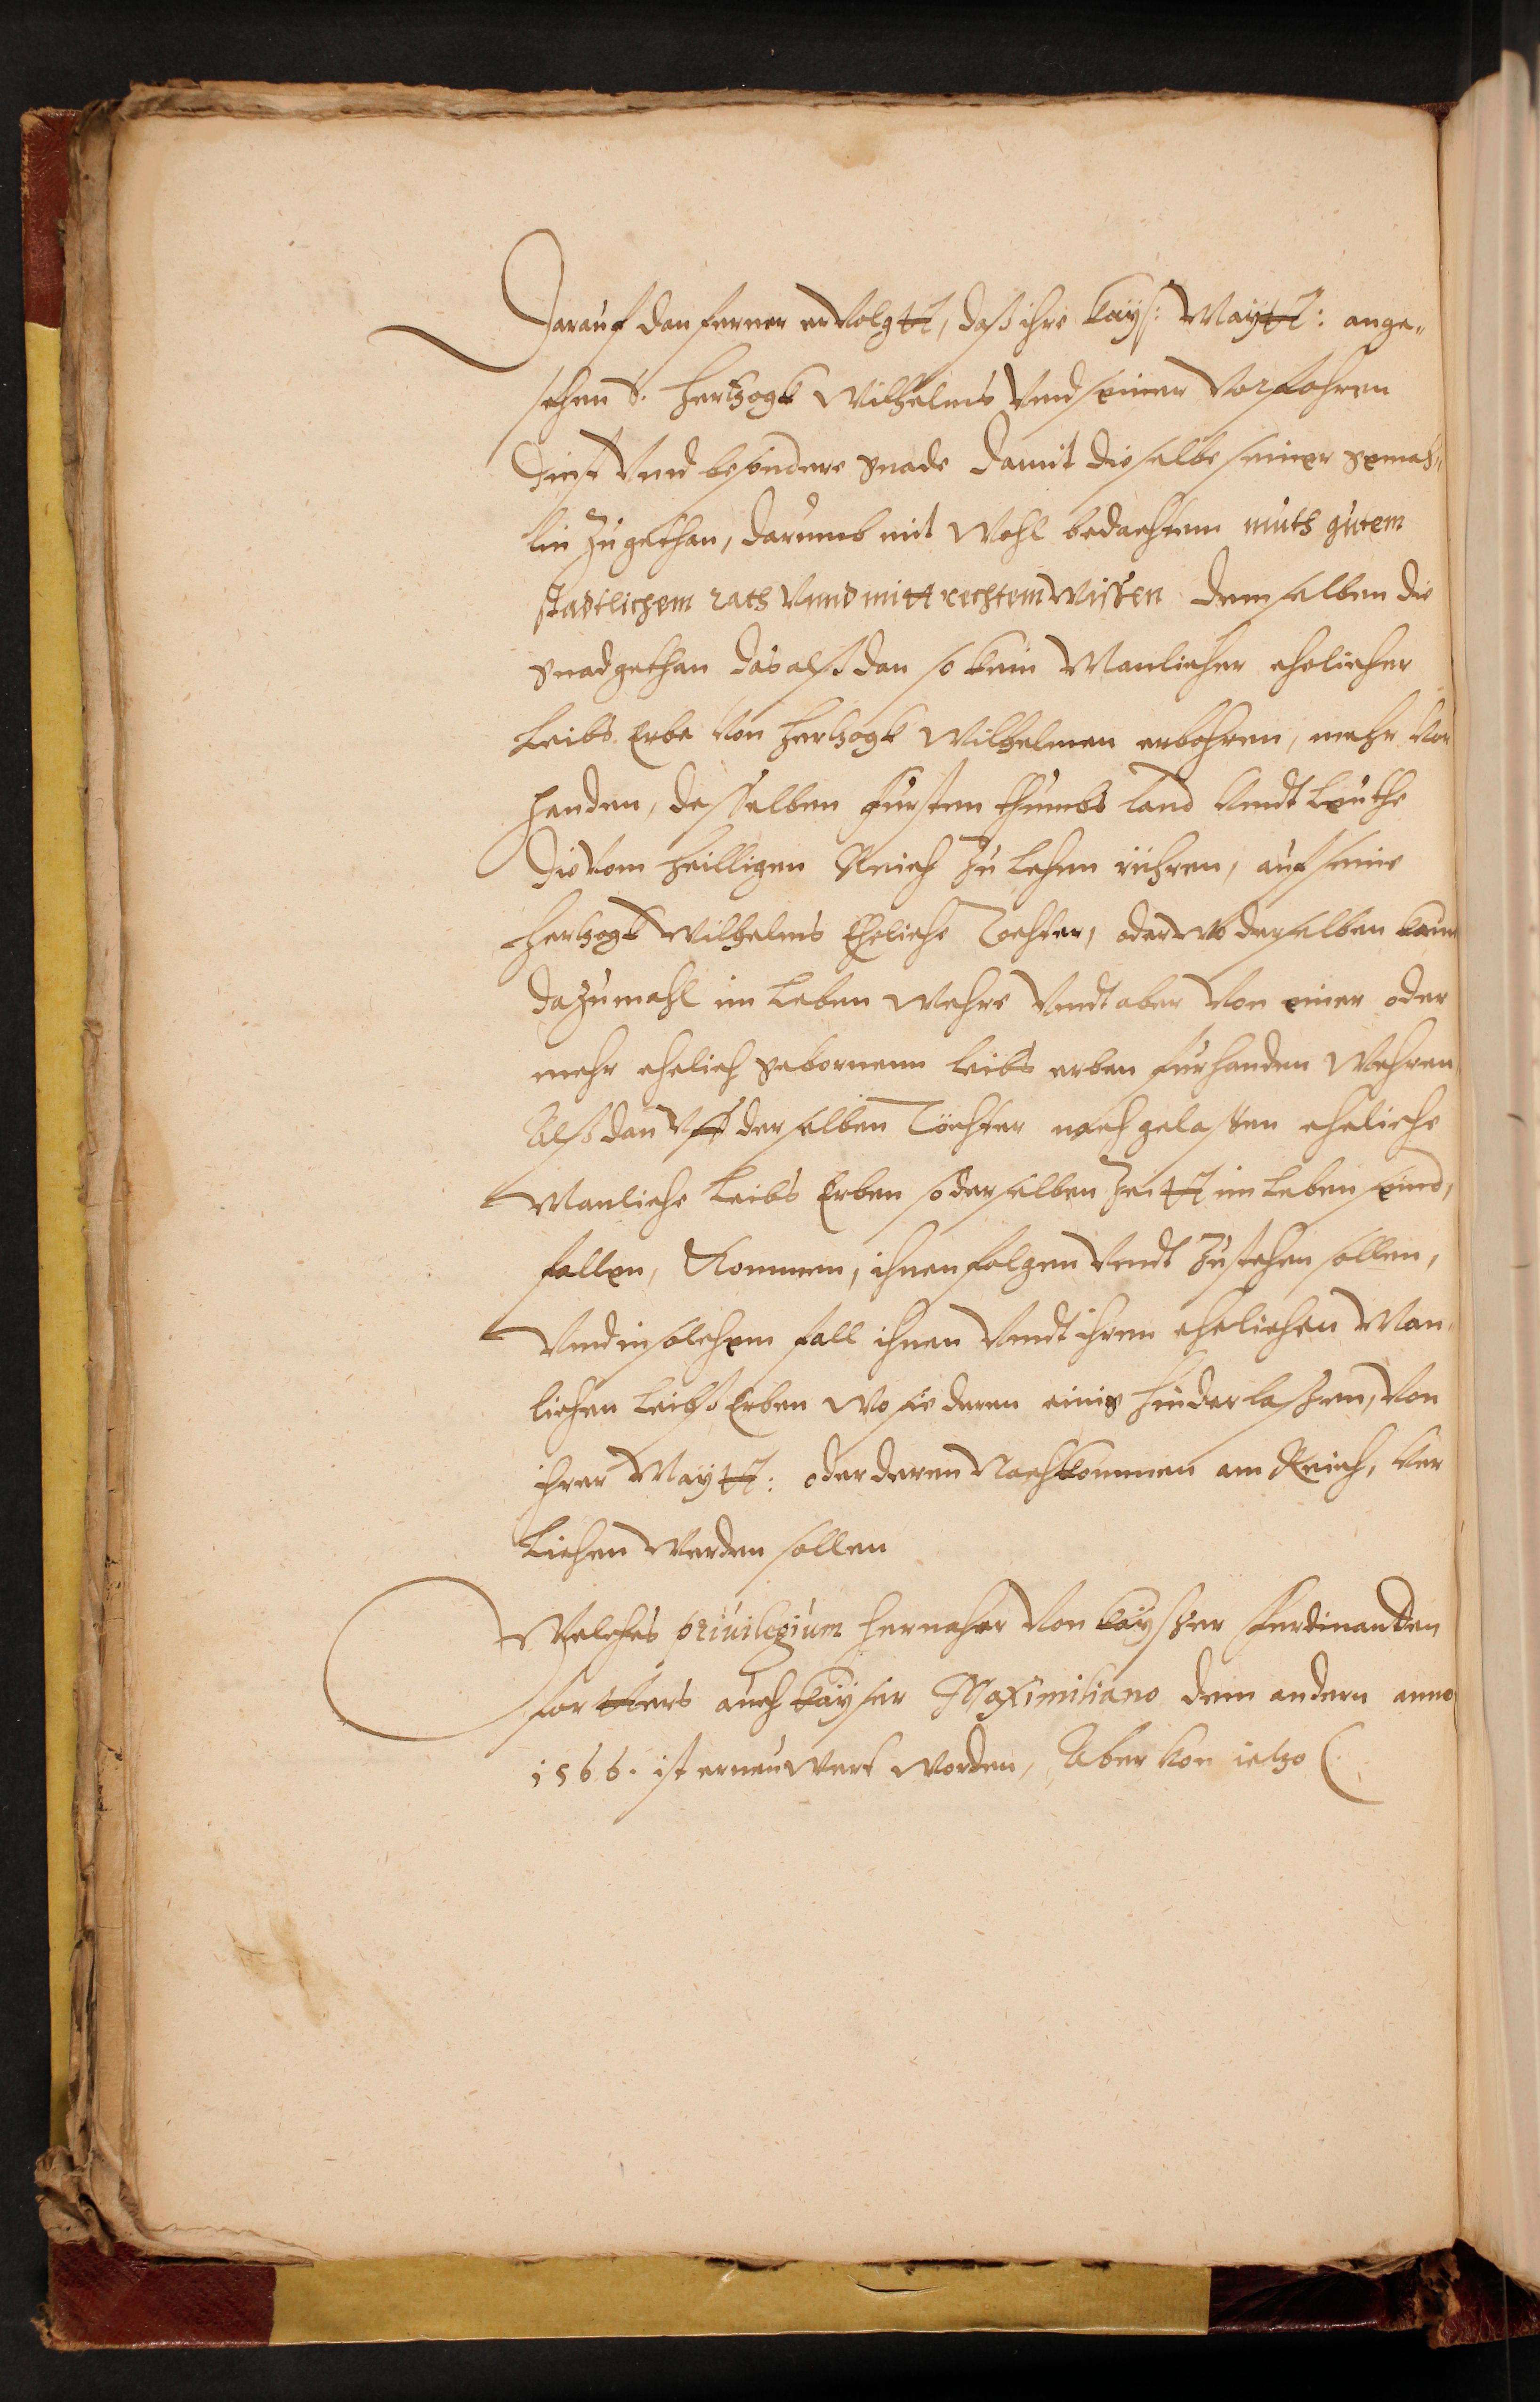 Darauf dan ferner ervolgtt, daß ihre Kays: Maytt: ange„
sehen S. Hertzogk Wilhelms Vnd seiner Vorfahren
Dinst Vnd besondere gnade damit dieselbe seiner gemah„
lin zugethan, darumb mit Wohl bedachtem muth gutem
stadtlichem rath Vnnd mitt rechtem Wissen demselben die
gnad gethan das alß dan so kein Manlicher ehelicher
Leibs Erbe Von Hertzogk Wilhelmen erbohren, mehr Vor
handen, desselben Fursten thumbs Land Vndt Leuthe
Die Vom heilligen Reich zu Lehen rühren, auf seine
Hertzogk Wilhelms Eheliche Tochter, oder Wo derselben keine
dazumahl im Leben Wehre Vndt aber Von einer oder
mehr ehelich gebornenn Leibs erben furhanden Wehren
Alß dan Vff derselben Töchter nachgelassen eheliche
Manliche Leibs Erben so derselben Zeitt im Leben seind,
fallen, Kommen, ihnen folgen Vndt zustehen sollen,
Vnd in solchem fall ihnen Vndt ihren ehelichen Man„
lichen Leibß Erben Wo sie deren einig hinderlaßen, Von
ihrer Maytt: oder deren Nachkommen am Reich, Ver
Liehen Werden sollen
Welches priuilegium hernaher Von Kayßer Ferdinandten
fortters auch Kayser Maximiliano dem andern anno
1566. ist erneuwert worden, Aber Von ietzo